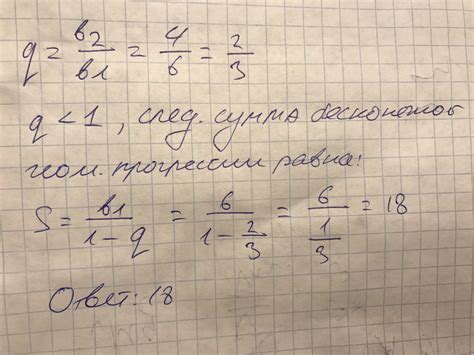 q = b2/b1 = 4/6 = 2/3
q < 1, след. сумма бесконечной
геом. прогрессии равна:
S = b1/(1-q) = 6/(1-2/3) = 6/(1/3) = 18
Ответ: 18